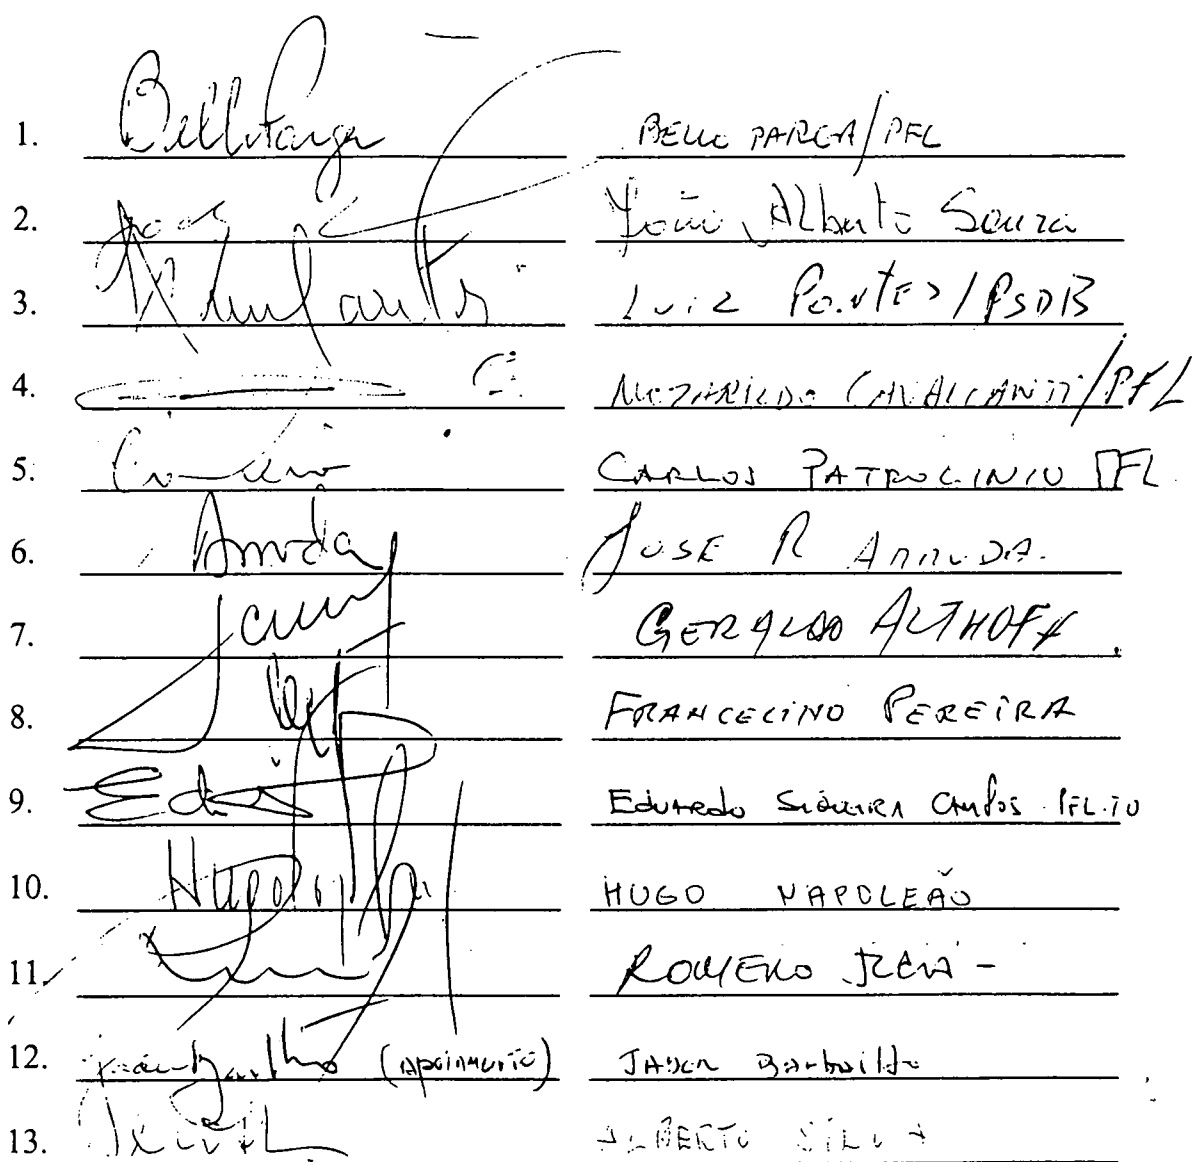 1. Bello Parga BELLO PARGA/PFL
2. João Alberto Souza
3. LUIZ PONTES/PSDB
4. MOZARILDO CAVALCANTI/PFL
5. CARLOS PATROCINIO PFL
6. Arruda JOSE R ARRUDA.
7. GERALDO ALTHOFF.
8. FRANCELINO PEREIRA
9. EDUARDO SIQUEIRA CAMPOS PFL.TO
10. Hugo HUGO NAPOLEÃO
11. ROMERO JUCÁ -
12. (APOIAMENTO) JADER Barbalho
13. ALBERTO SILVA